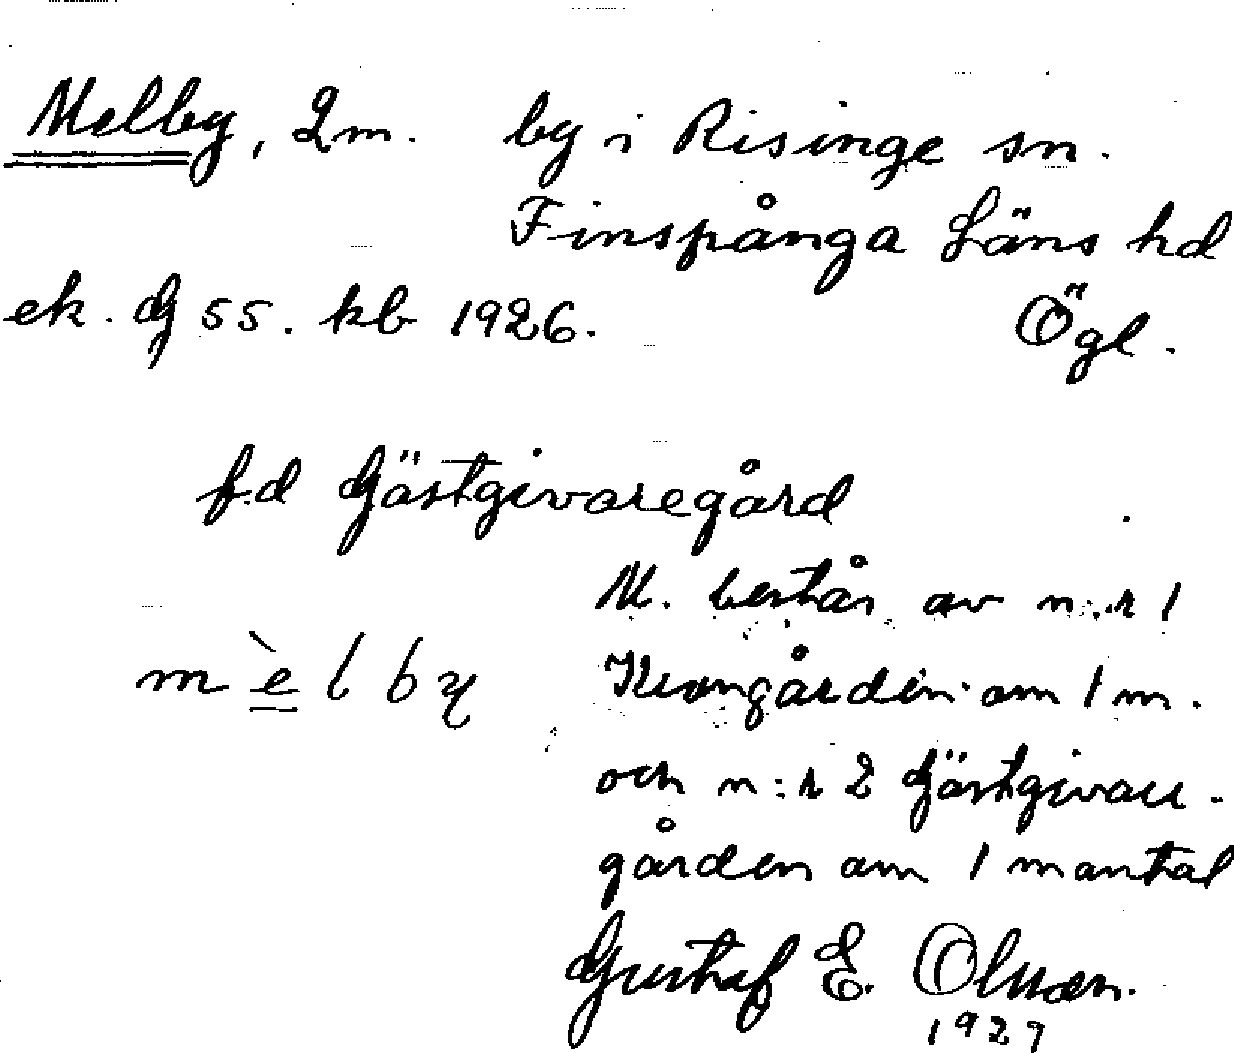 Melby, 2 m. by i Risinge sn.
Finspånga Läns hd
ek. g 55. kb 1926. Ögl.
f.d Gästgivaregård
M. består av n:r 1
mèlby
Kvarngården om 1 m.
och n:r 2 Gästgivare-
gården om 1 mantal
Gustaf E. Olsson.
1927